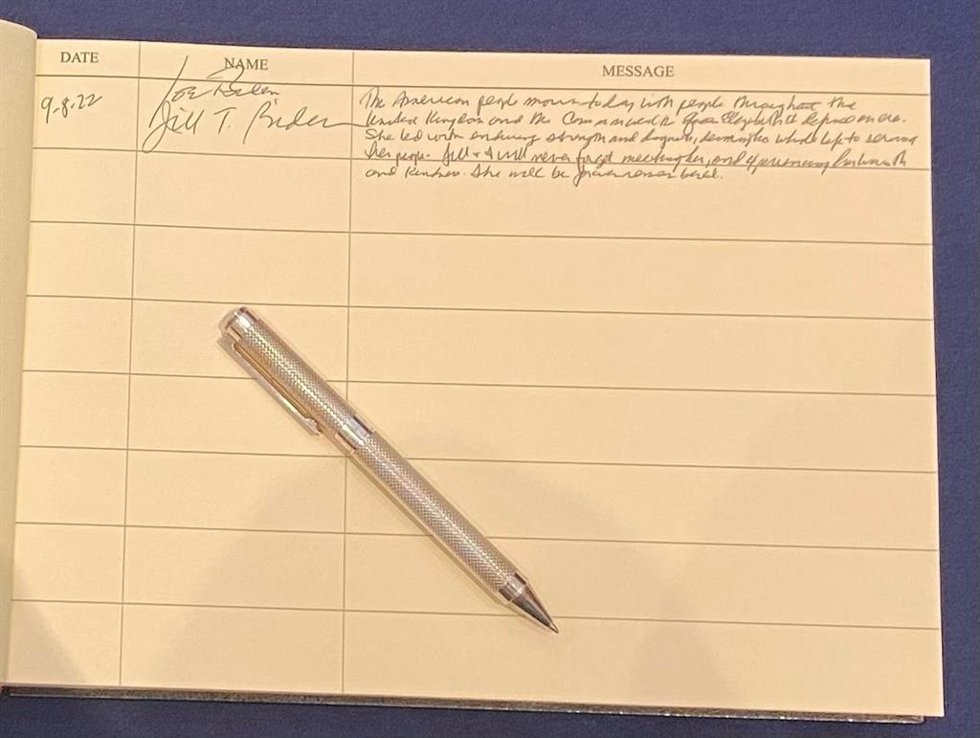 DATE NAME MESSAGE
9.8.22
Joe Biden
Jill T. Biden
The American people mourn today with people throughout the
United Kingdom and the Commonwealth. Queen Elizabeth II defined an era.
She led with enduring strength and dignity, whole life to serving
her people. Jill & I will never forget meeting her, and experiencing her warmth
and kindness. She will be forever remembered.